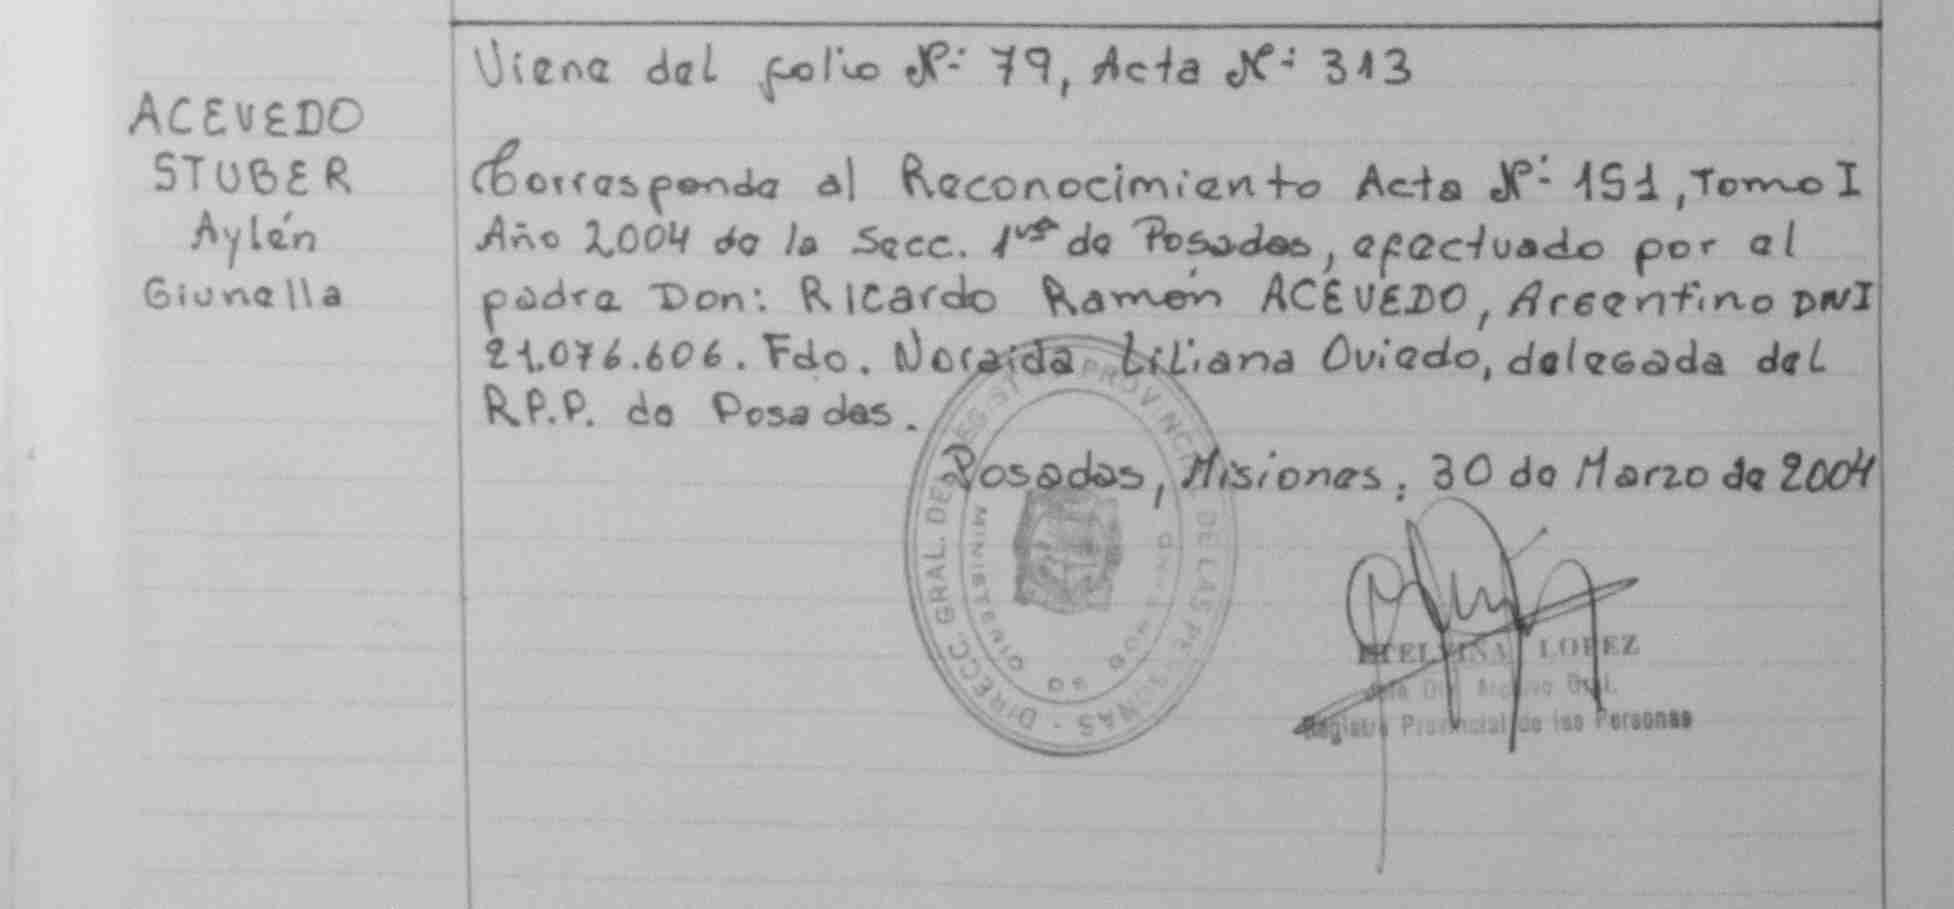 Viene del folio Nº 79, Acta Nº 313
ACEVEDO
STUBER
Aylén
Giunella
Corresponde al Reconocimiento Acta Nº 151, Tomo I
Año 2004 de la Secc. 1ra de Posadas, efectuado por el
padre Don: Ricardo Ramón ACEVEDO, Argentino DNI
21.076.606. Fdo. Noraida Liliana Oviedo, delegada del
R.P.P. de Posadas.
Posadas, Misiones, 30 de Marzo de 2004
DIRECC. GRAL. DEL REGISTRO PROVINCIAL DE LAS PERSONAS
MINISTERIO DE GOBIERNO
ETELVINA LOPEZ
Jefe Div. Archivo Gral.
Registro Provincial de las Personas